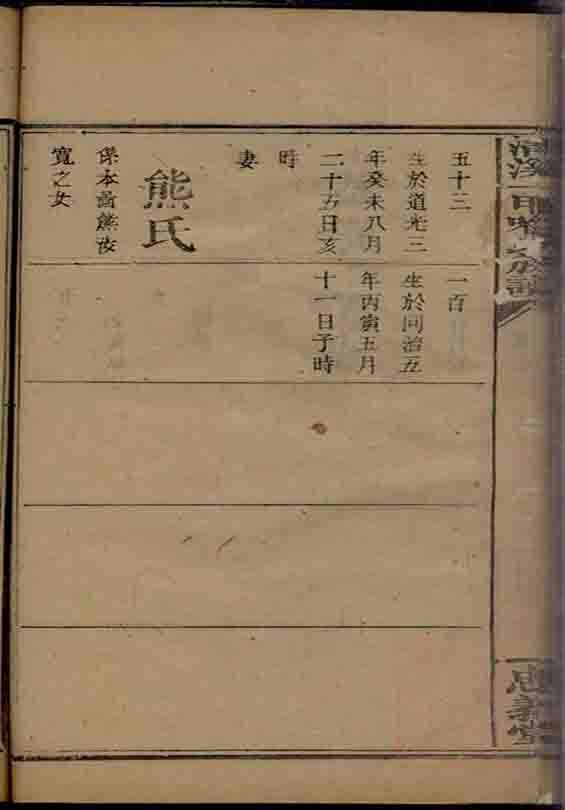 五十三
生於道光三
年癸未八月
二十五日亥
時
妻
熊氏
係本邑熊
寬之女
一百
生於同治五
年丙寅五月
十一日子時
忠義堂